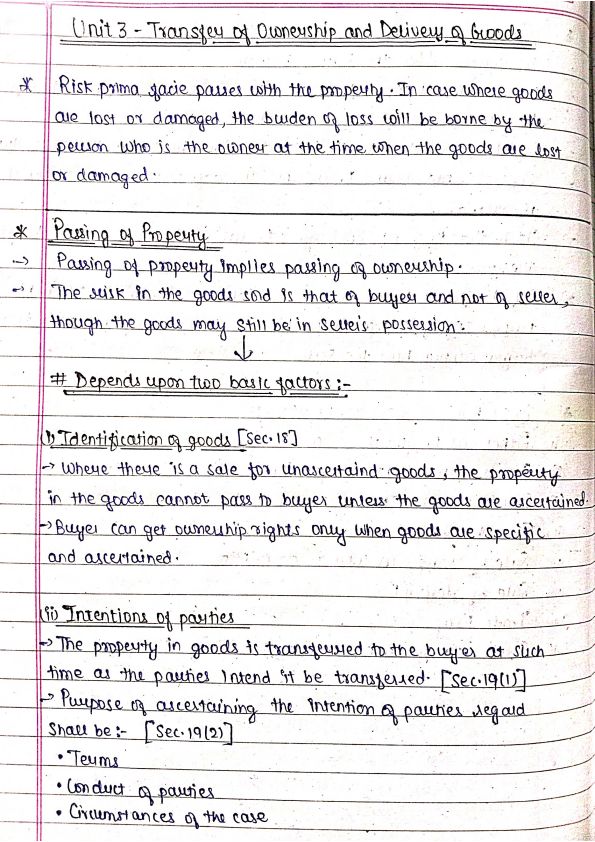 Unit 3 - Transfer of Ownership and Delivery of Goods
* Risk prima facie passes with the property. In case where goods
are lost or damaged, the burden of loss will be borne by the
person who is the owner at the time when the goods are lost
or damaged.
* Passing of Property
→ Passing of property implies passing of ownership.
→ The risk in the goods sold is that of buyer and not of seller,
though the goods may still be in seller's possession.
↓
# Depends upon two basic factors :-
(i) Identification of goods [Sec.18]
→ Where there is a sale for unascertaind goods, the property
in the goods cannot pass to buyer unless the goods are ascertained.
→ Buyer can get ownership rights only when goods are specific
and ascertained.
(ii) Intentions of parties
→ The property in goods is transferred to the buyer at such
time as the parties intend it be transferred. [Sec.19(1)]
→ Purpose of ascertaining the intention of parties regard
shall be :- [Sec.19(2)]
• Terms
• Conduct of parties
• Circumstances of the case